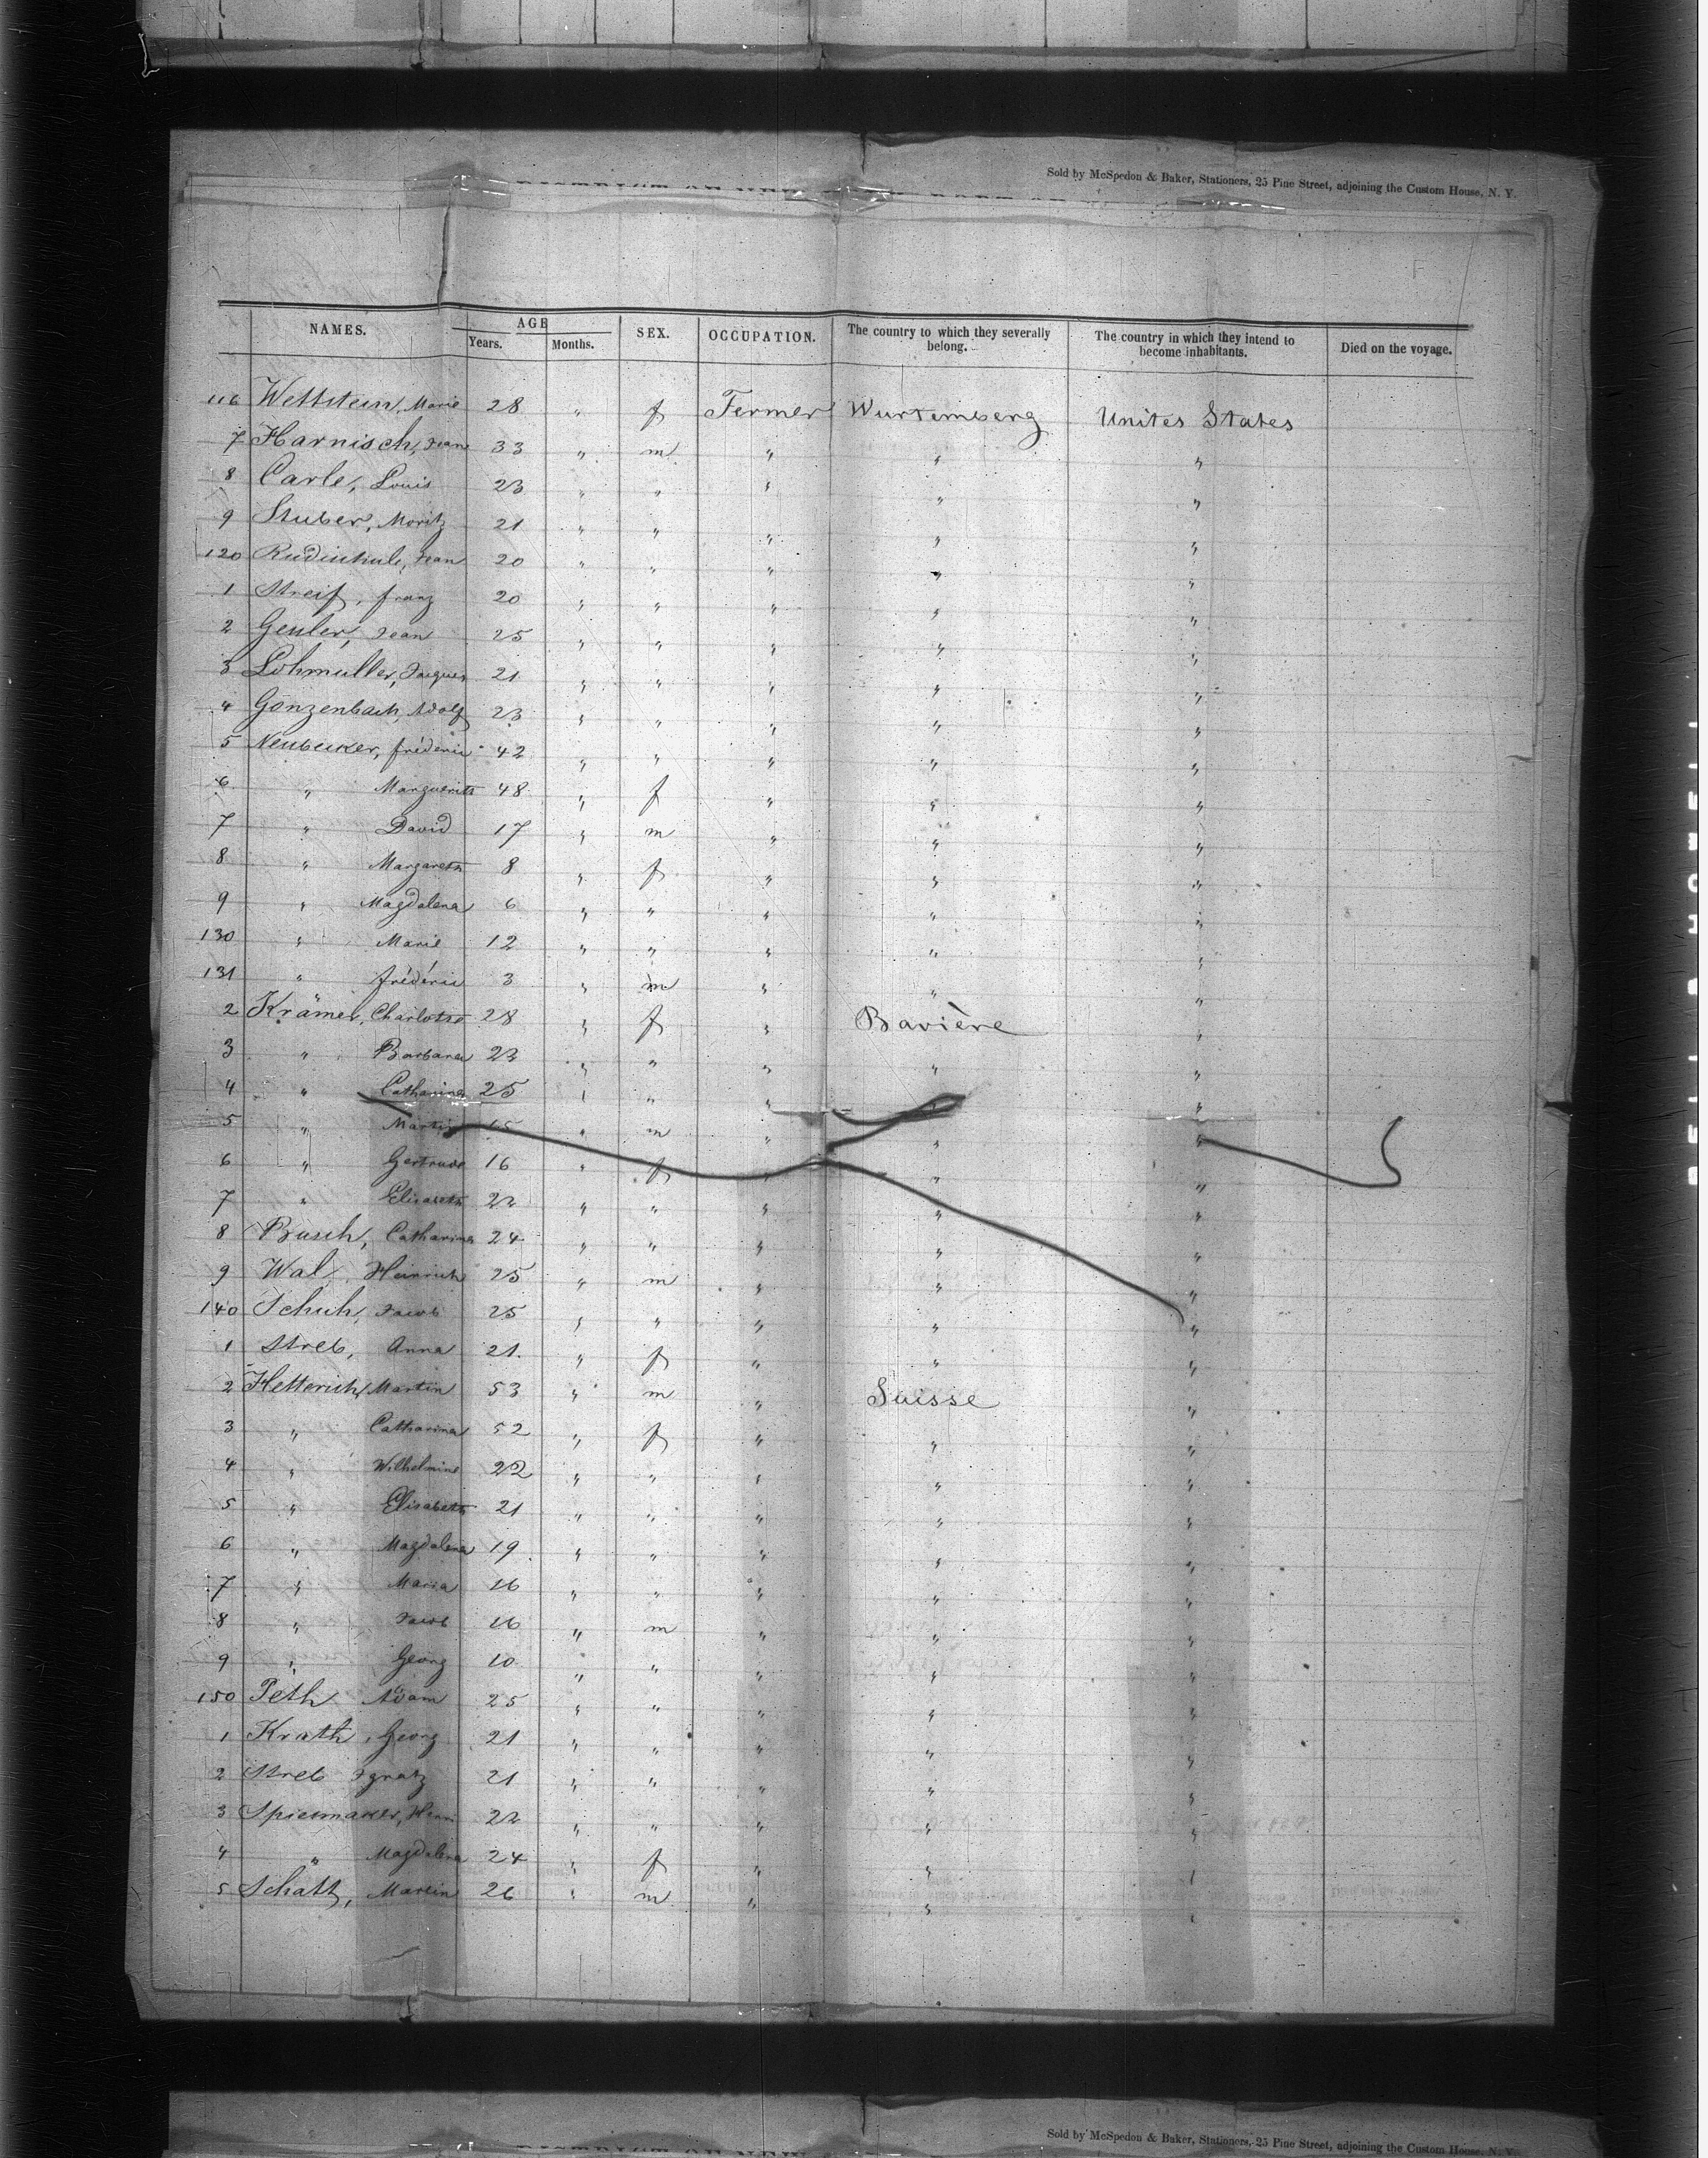 Sold by McSpedon & Baker, Stationers, 25 Pine Street, adjoining the Custom House, N. Y.
NAMES. AGE SEX. OCCUPATION. The country to which they severally belong. The country in which they intend to become inhabitants. Died on the voyage.
Years. Months.
116 Wettstein, Marie 28 " f Fermer Wurtemberg Unites States
7 Harnisch, Jean 33 " m " " "
8 Carle, Louis 23 " " " " "
9 Stuber, Moritz 21 " " " " "
120 Jean 20 " " " " "
1 Streif, franz 20 " " " " "
2 Geuler, Jean 25 " " " " "
3 Lohmuller, Jaques 21 " " " " "
4 Gonzenbach, Adolf 23 " " " " "
5 Neubecker, fréderic 42 " " " " "
6 " Marguerite 48 " f " " "
7 " David 17 " m " " "
8 " Margareth 8 " f " " "
9 " Magdalena 6 " " " " "
130 " Marie 12 " " " " "
131 " fréderic 3 " m " " "
2 Krämer, Charlotte 28 " f " Bavière "
3 " Barbara 23 " " " " "
4 " Catharina 25 " " " " "
5 " Martin 15 " m " " "
6 " Gertrude 16 " f " " "
7 " Elisabeth 22 " " " " "
8 Busch, Catharina 24 " " " " "
9 Wal, Heinrich 25 " m " " "
140 Schuh, Jacob 25 " " " " "
1 Streb, Anna 21 " f " " "
2 Hetterich, Martin 53 " m " Suisse "
3 " Catharina 52 " f " " "
4 " Wilhelmine 22 " " " " "
5 " Elisabeth 21 " " " " "
6 " Magdalena 19 " " " " "
7 " Maria 16 " " " " "
8 " Jacob 16 " m " " "
9 " Georg 10 " " " " "
150 Peth Adam 25 " " " " "
1 Krath, Georg 21 " " " " "
2 Streb Ignatz 21 " " " " "
3 22 " " " " "
4 " Magdalena 24 " f " " "
5 Schatz, Martin 26 " m " " "
Sold by McSpedon & Baker, Stationers, 25 Pine Street, adjoining the Custom House, N. Y.